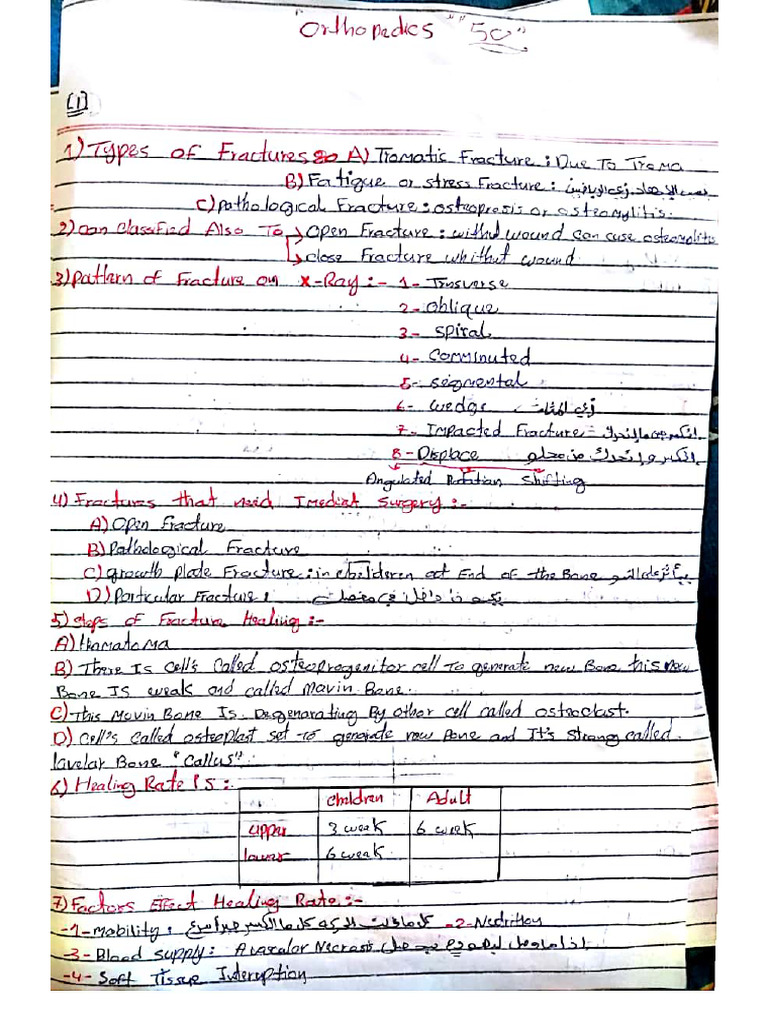 "Orthopedics" "50"
[1]
1) Types of Fractures: A) Tromatic Fracture: Due To Troma
B) Fatigue or stress Fracture:
C) pathological Fracture: osteoprosis or osteomylitis.
2) can Classified Also To → open Fracture: with wound can cuse osteomylitis
↳ close Fracture whithut wound
3) pattern of Fracture on X-Ray:- 1- Trnsverse
2- oblique
3- spiral
4- Comminuted
5- segmental
6- wedge زي المثلث
7- Impacted Fracture
8- Displace إنكسر وإتحرك من محلو
Angulated Rotation shifting
4) Fractures that need Imediat Surgery:-
A) Open Fracture
B) Pathological Fracture
C) growth plate Fracture: in childeren at End of the Bone
D) Particular Fracture:
5) Steps of Fracture Healing:-
A) Hamatoma
B) There Is Cell's Called osteoprogenitor cell To generate new Bone this new
Bone IS weak and called Mavin Bone.
C) This Movin Bone Is Degenarating By other cell called osteoclast.
D) Cell's Called osteoplast set to generate new Bone and It's strong called
lavelar Bone "Callus".
6) Healing Rate IS:-
children Adult
upper 3 weak 6 week
lower 6 weak
7) Factors Effect Healing Rate:-
-1- Mobility: -2- Nutrition
-3- Blood supply: Avascular Necrosis
-4- Soft Tissue Interuption